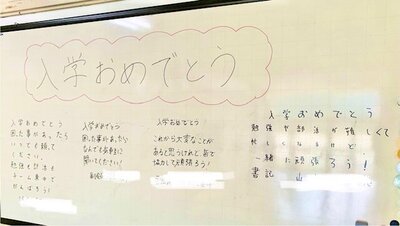 入学おめでとう
入学おめでとう
困った事があったら
いつでも頼って
ください。
勉強も部活も
チーム東中で
がんばろう!
入学おめでとう
困った事があったら
なんでも気軽に
聞いてください!
副
入学おめでとう
これから大変なことが
あると思うけれど皆で
協力して頑張ろう!
入学おめでとう
勉強や部活が難しくて
忙しくなるけど
一緒に頑張ろう!
書記 山